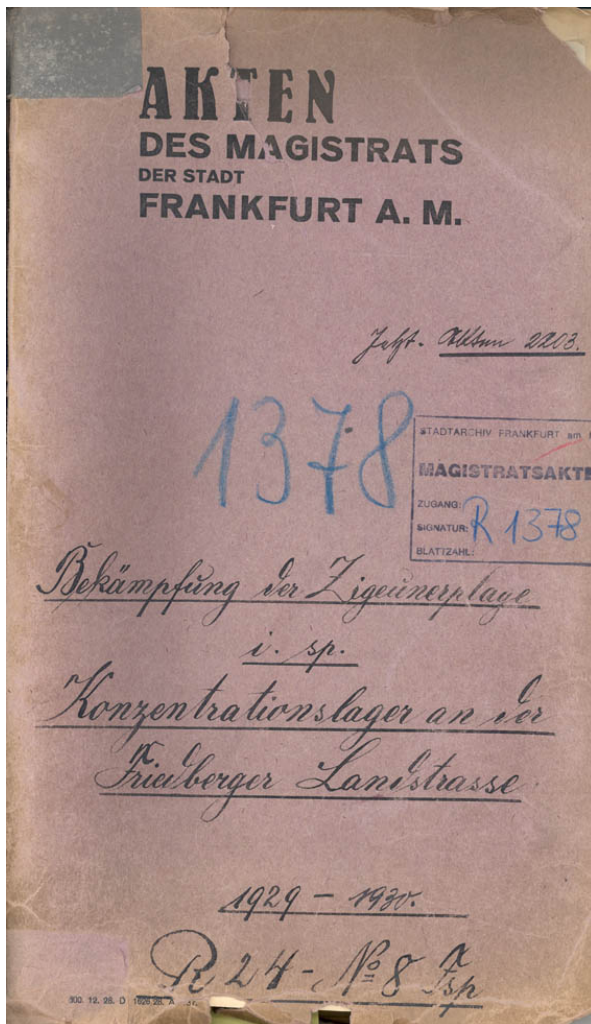 AKTEN
DES MAGISTRATS
DER STADT
FRANKFURT A. M.
Jetzt. Akten 2203.
1378
STADTARCHIV FRANKFURT am
MAGISTRATSAKTE
ZUGANG:
SIGNATUR: R 1378
BLATTZAHL:
Bekämpfung der Zigeunerplage
i. sp.
Konzentrationslager an der
Friedberger Landstrasse
1929 – 1930.
R 24 - № 8